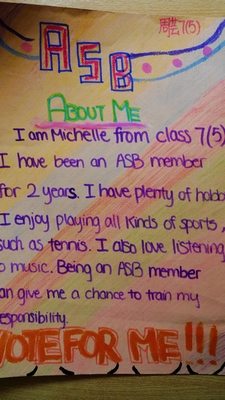 ASB
周芸7(5)
About Me
I am Michelle from class 7(5)
I have been an ASB member
for 2 years. I have plenty of hobb
I enjoy playing all kinds of sports,
such as tennis. I also love listening
o music. Being an ASB member
an give me a chance to train my
esponsibility.
VOTE FOR ME!!!